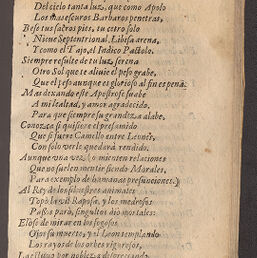 Del cielo tanta luz, que como Apolo
Los mas escuros Barbaros penetras,
Bese tus sacros pies, tu cetro solo
Nieve Septentrional, Libica arena,
Y como el Tajo, el Indico Pactolo.
Siempre resulte de tu luz serena
Otro Sol que te alivie el peso grave,
Que el peso aunque es glorioso al fin es pena.
Mas dexando este Apostrofe suave
A mi lealtad, y amor agradecido,
Para que siempre su grandeza alabe.
Conozca si quisiere el presumido
Que si fuera Camello entre Leones,
Con solo verle quedará rendido.
Aunque una vez (o mienten relaciones
Que no suelen mentir siendo Morales,
Para exemplo de humanas presunciones.)
Al Rey de los silvestres animales
Topó la vil Raposa, y los medrosos
Passos paró, singultos dio mortales:
El oso de mirar en los fogosos
Ojos su muerte, y el Leon templando
Los rayos de los orbes rigurosos,